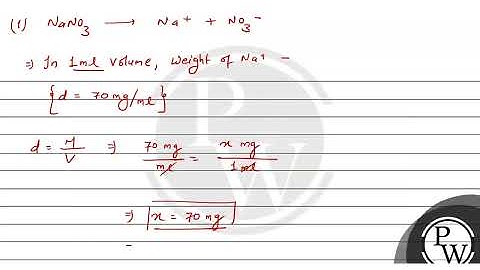 (1) NaNO3 ⟶ Na+ + No3-
⇒ In 1ml volume, weight of Na+ -
{d = 70 mg/ml}
d = M/V ⇒ 70 mg/ml = x mg/1 ml
⇒ x = 70 mg
-
PW
PW